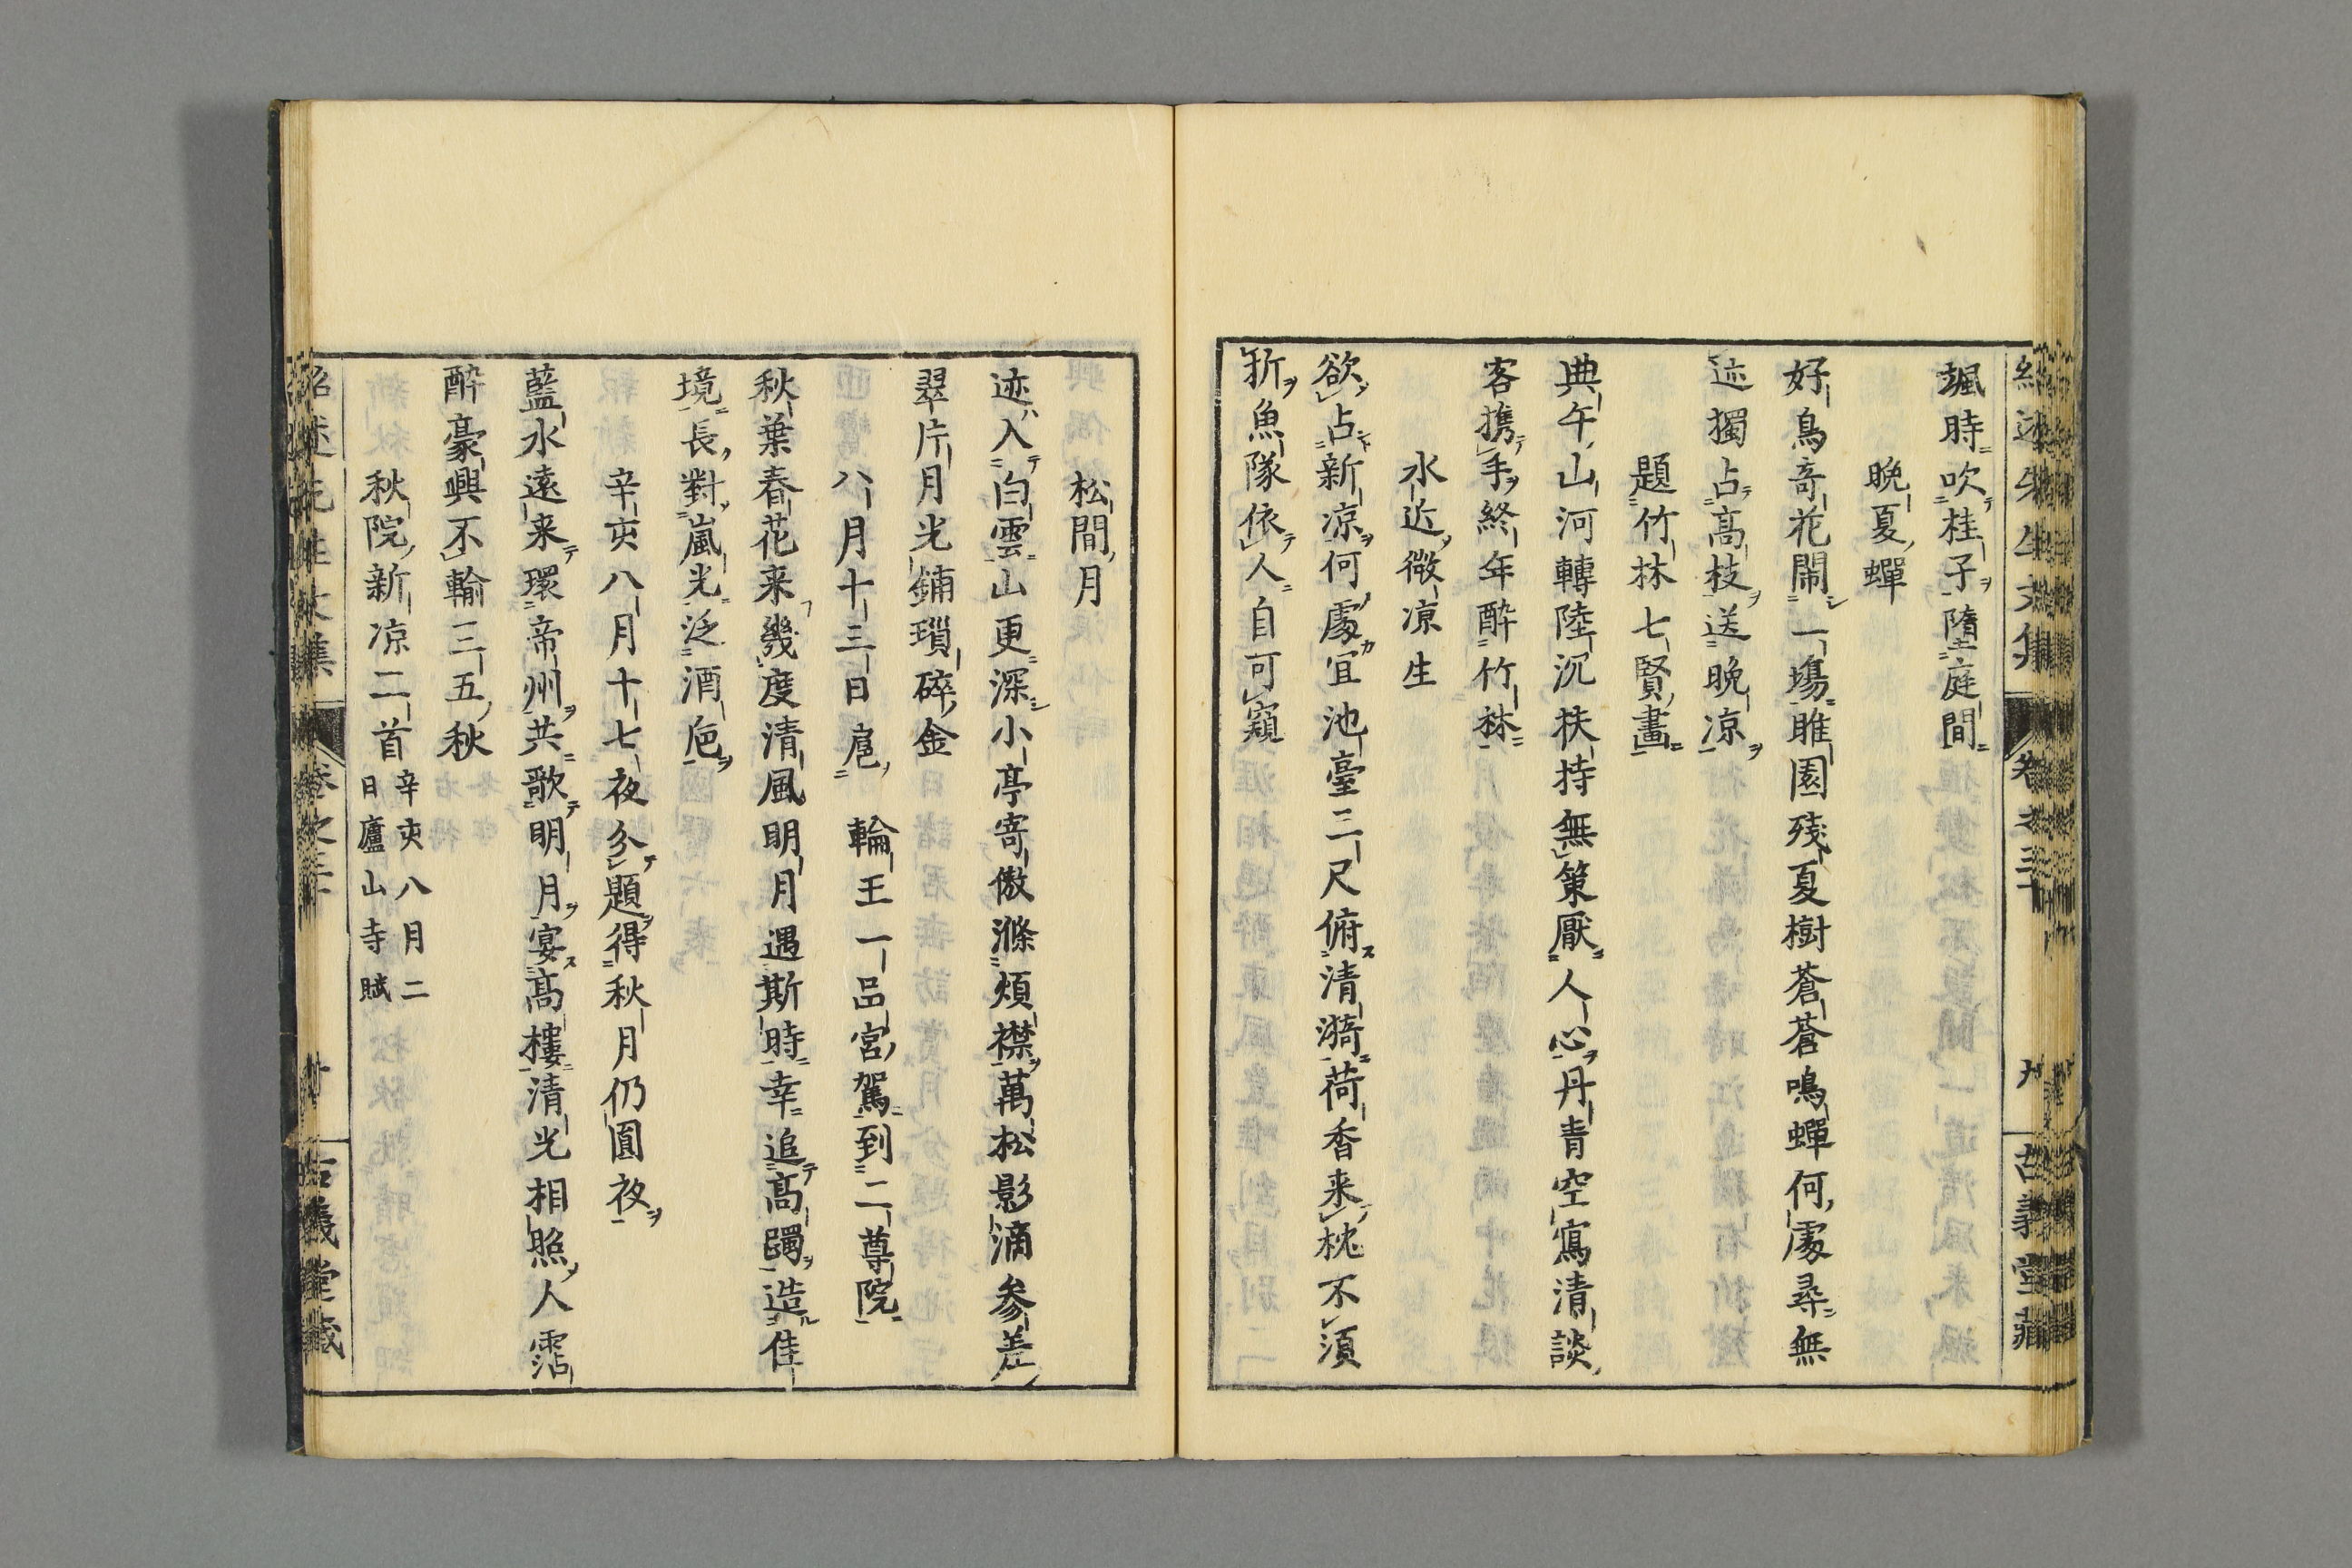 颯時吹桂子墮庭間
晩夏蟬
好鳥奇花閙一塲睢園殘夏樹蒼蒼鳴蟬何處尋無
迹獨占高枝送晩凉
題竹林七賢畫
典午山河轉陸沉扶持無策厭人心丹青空寫清談
客携手終年醉竹林
水近微凉生
欲占新凉何處宜池臺三尺俯清漪荷香来枕不須
折魚隊依人自可窺
松間月
迹入白雲山更深小亭寄傲滌煩襟萬松影滴參差
翠片月光鋪瑣碎金
八月十三日扈輪王一品宮駕到二尊院
秋葉春花来幾度清風明月遇斯時幸追高躅造佳
境長對嵐光泛酒巵
辛亥八月十七夜分題得秋月仍圓夜
藍水遠来環帝州共歌明月宴高樓清光相照人霑
醉豪興不輸三五秋
秋院新凉二首
辛亥八月二
日廬山寺賦
紹述先生文集
卷之三十
古義堂藏